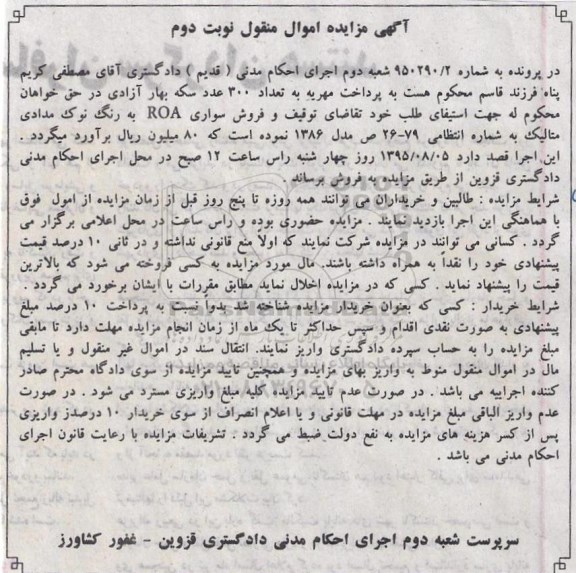 آگهی مزایده اموال منقول نوبت دوم
در پرونده به شماره ۹۵۰۲۹۰/۲ شعبه دوم اجرای احکام مدنی ( قدیم ) دادگستری آقای مصطفی کریم
پناه فرزند قاسم محکوم هست به پرداخت مهریه به تعداد ۳۰۰ عدد سکه بهار آزادی در حق خواهان
محکوم له جهت استیفای طلب خود تقاضای توقیف و فروش سواری ROA به رنگ نوک مدادی
متالیک به شماره انتظامی ۷۹-۲۶ ص مدل ۱۳۸۶ نموده است که ۸۰ میلیون ریال برآورد میگردد .
این اجرا قصد دارد ۱۳۹۵/۰۸/۰۵ روز چهار شنبه راس ساعت ۱۲ صبح در محل اجرای احکام مدنی
دادگستری قزوین از طریق مزایده به فروش برساند
شرایط مزایده : طالبین و خریداران می توانند همه روزه تا پنج روز قبل از زمان مزایده از امول فوق
با هماهنگی این اجرا بازدید نمایند . مزایده حضوری بوده و راس ساعت در محل اعلامی برگزار می
گردد . کسانی می توانند در مزایده شرکت نمایند که اولاً منع قانونی نداشته و در ثانی ۱۰ درصد قیمت
پیشنهادی خود را نقداً به همراه داشته باشند. مال مورد مزایده به کسی فروخته می شود که بالاترین
قیمت را پیشنهاد نماید . کسی که در مزایده اخلال نماید مطابق مقررات با ایشان برخورد می گردد .
شرایط خریدار : کسی که بعنوان خریدار مزایده شناخته شد بدواً نسبت به پرداخت ۱۰ درصد مبلغ
پیشنهادی به صورت نقدی اقدام و سپس حداکثر تا یک ماه از زمان انجام مزایده مهلت دارد تا مابقی
مبلغ مزایده را به حساب سپرده دادگستری واریز نمایند. انتقال سند در اموال غیر منقول و یا تسلیم
مال در اموال منقول منوط به واریز بهای مزایده و همچنین تایید مزایده از سوی دادگاه محترم صادر
کننده اجراییه می باشد . در صورت عدم تایید مزایده کلیه مبلغ واریزی مسترد می شود . در صورت
عدم واریز الباقی مبلغ مزایده در مهلت قانونی و یا اعلام انصراف از سوی خریدار ۱۰ درصدز واریزی
پس از کسر هزینه های مزایده به نفع دولت ضبط می گردد . تشریفات مزایده با رعایت قانون اجرای
احکام مدنی می باشد .
سرپرست شعبه دوم اجرای احکام مدنی دادگستری قزوین - غفور کشاورز